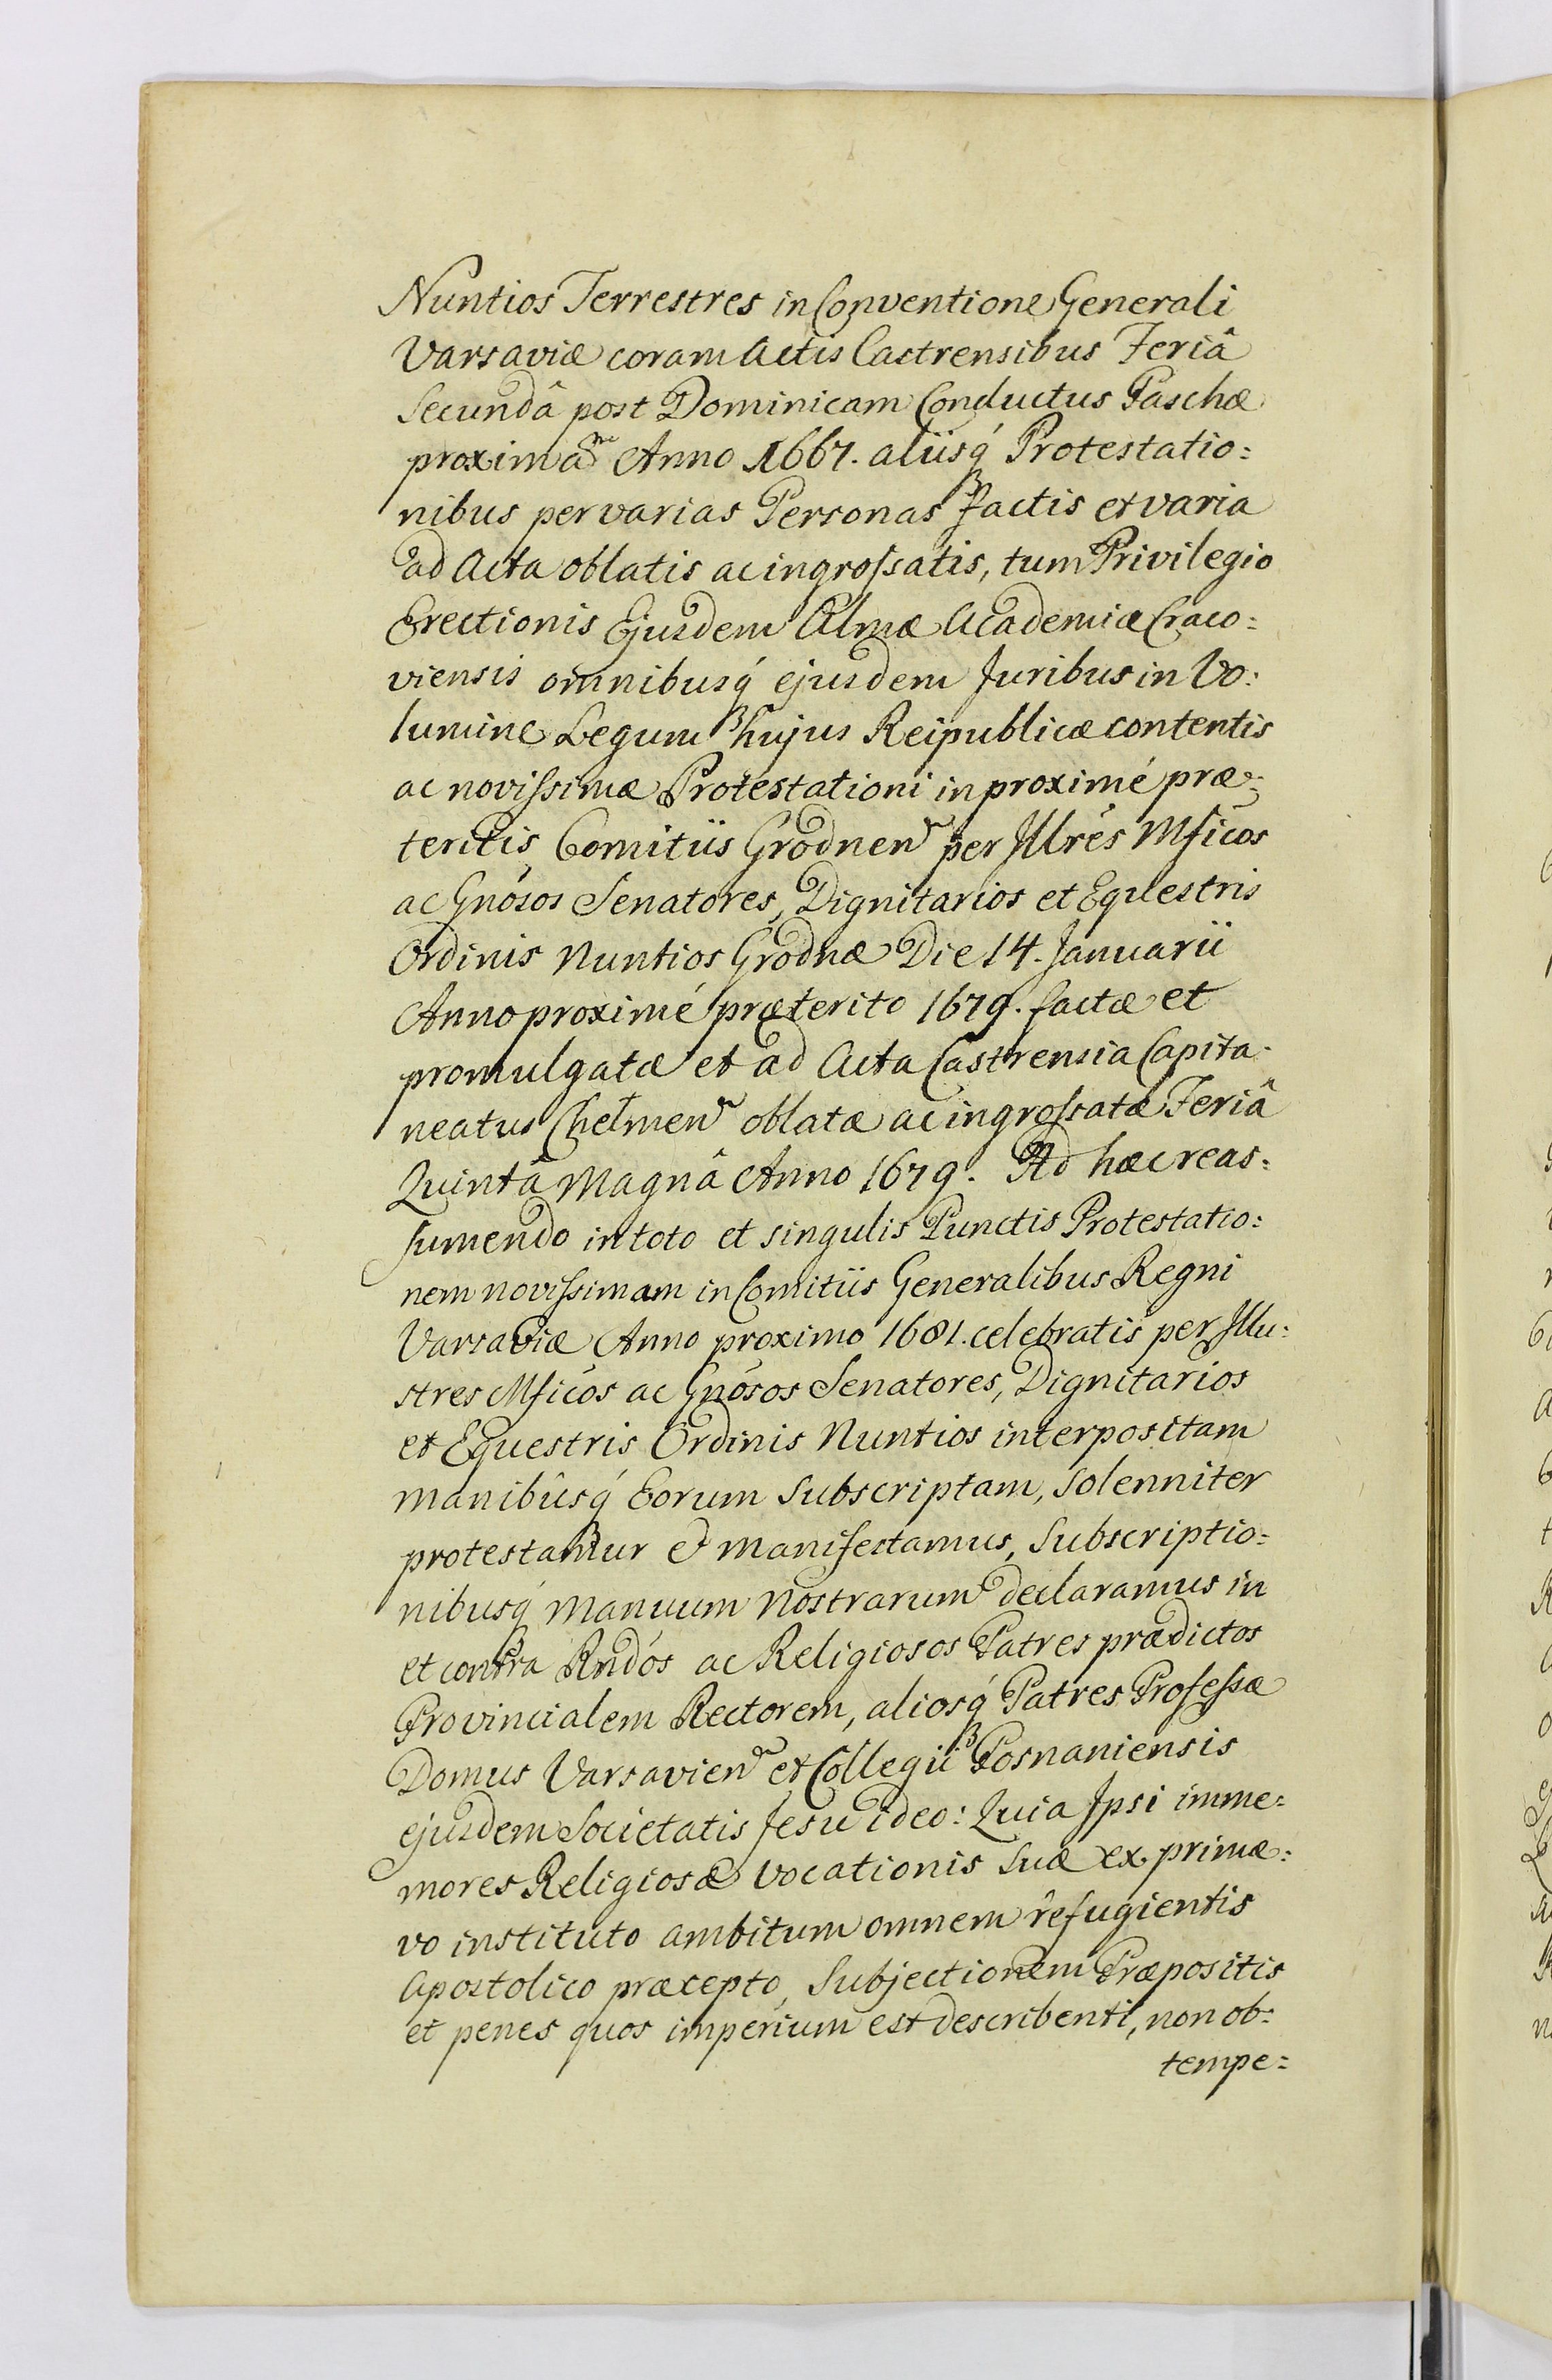 Nuntios Terrestres in Conventione Generali
Varsaviæ coram Actis Castrensibus Feriâ
Secundâ post Dominicam Conductus Paschæ
proximã Anno 1667. aliisq́ Protestatio:
nibus per varias Personas factis et varia
ad Acta oblatis ac ingroſsatis, tum Privilegio
Erectionis Ejusdem Almæ Academiæ Craco:
viensis omnibusq́ ejusdem Juribus in Vo:
lumine Legum hujus Reipublicæ contentis
ac noviſsimæ Protestationi in proximé præ:
teritis Comitiis Grodneñ per Jllrés Mficos
ac Gnósos Senatores, Dignitarios et Equestris
Ordinis Nuntios Grodnæ Die 14. Januarii
Anno proximé præterito 1679. factæ et
promulgatæ et ad Acta Castrensia Capita:
neatus Chełmeñ oblatæ ac ingroſsatæ Feriâ
Quintâ Magnâ Anno 1679. Ad hæc reas:
sumendo in toto et singulis Punctis Protestatio:
nem noviſsimam in Comitiis Generalibus Regni
Varsaviæ Anno proximo 1681. celebratis per Jllu:
stres Mficos ac Gnósos Senatores, Dignitarios
et Equestris Ordinis Nuntios interpositam
manibûsq́ Eorum Subscriptam, Solenniter
protestamur & manifestamus, Subscriptio:
nibusq́ Manuum Nostrarum declaramus in
et contra Rndós ac Religiosos Patres prædictos
Provincialem Rectorem, aliosq́ Patres Profeſsæ
Domus Varsavieñ et Collegii Posnaniensis
ejusdem Societatis Jesu ideo: Quia Jpsi imme:
mores Religiosæ Vocationis Suæ ex primæ:
vo instituto ambitum omnem refugientis
Apostolico præcepto, Subjectionem Præpositis
et penes quos imperium est describenti, non ob:
tempe: